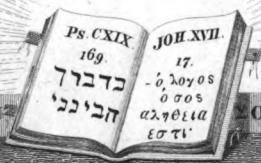 Ps. CXIX.
169.
כדברך
הבינני
JOH. XVII.
17.
-ὁ λογος
ὁ σος
αληθεια
εστι